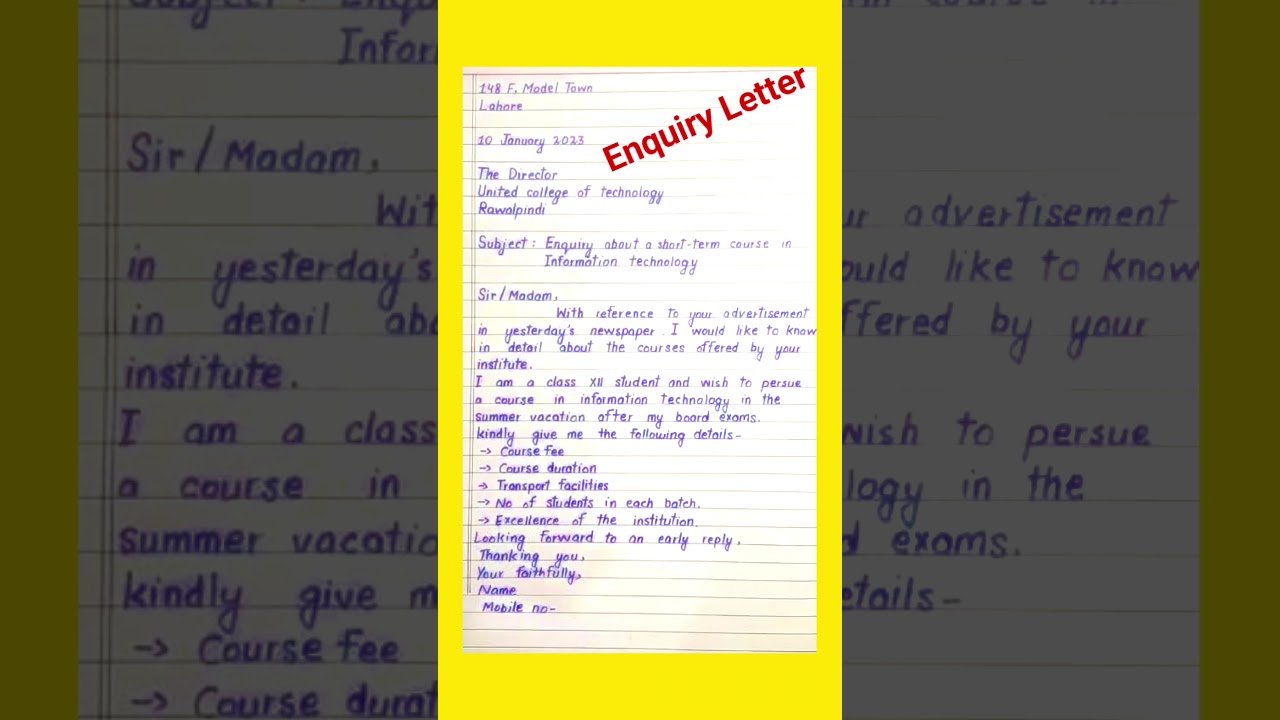 Enquiry Letter
148 F, Model Town
Lahore
10 January 2023
The Director
United college of technology
Rawalpindi
Subject : Enquiry about a short-term course in
Information technology
Sir/Madam,
With reference to your advertisement
in yesterday's newspaper . I would like to know
in detail about the courses offered by your
institute.
I am a class XII student and wish to persue
a course in information technology in the
summer vacation after my board exams.
kindly give me the following details-
-> Course fee
-> Course duration
-> Transport facilities
-> No of students in each batch.
-> Excellence of the institution.
Looking forward to an early reply.
Thanking you,
Your faithfully,
Name
Mobile no-